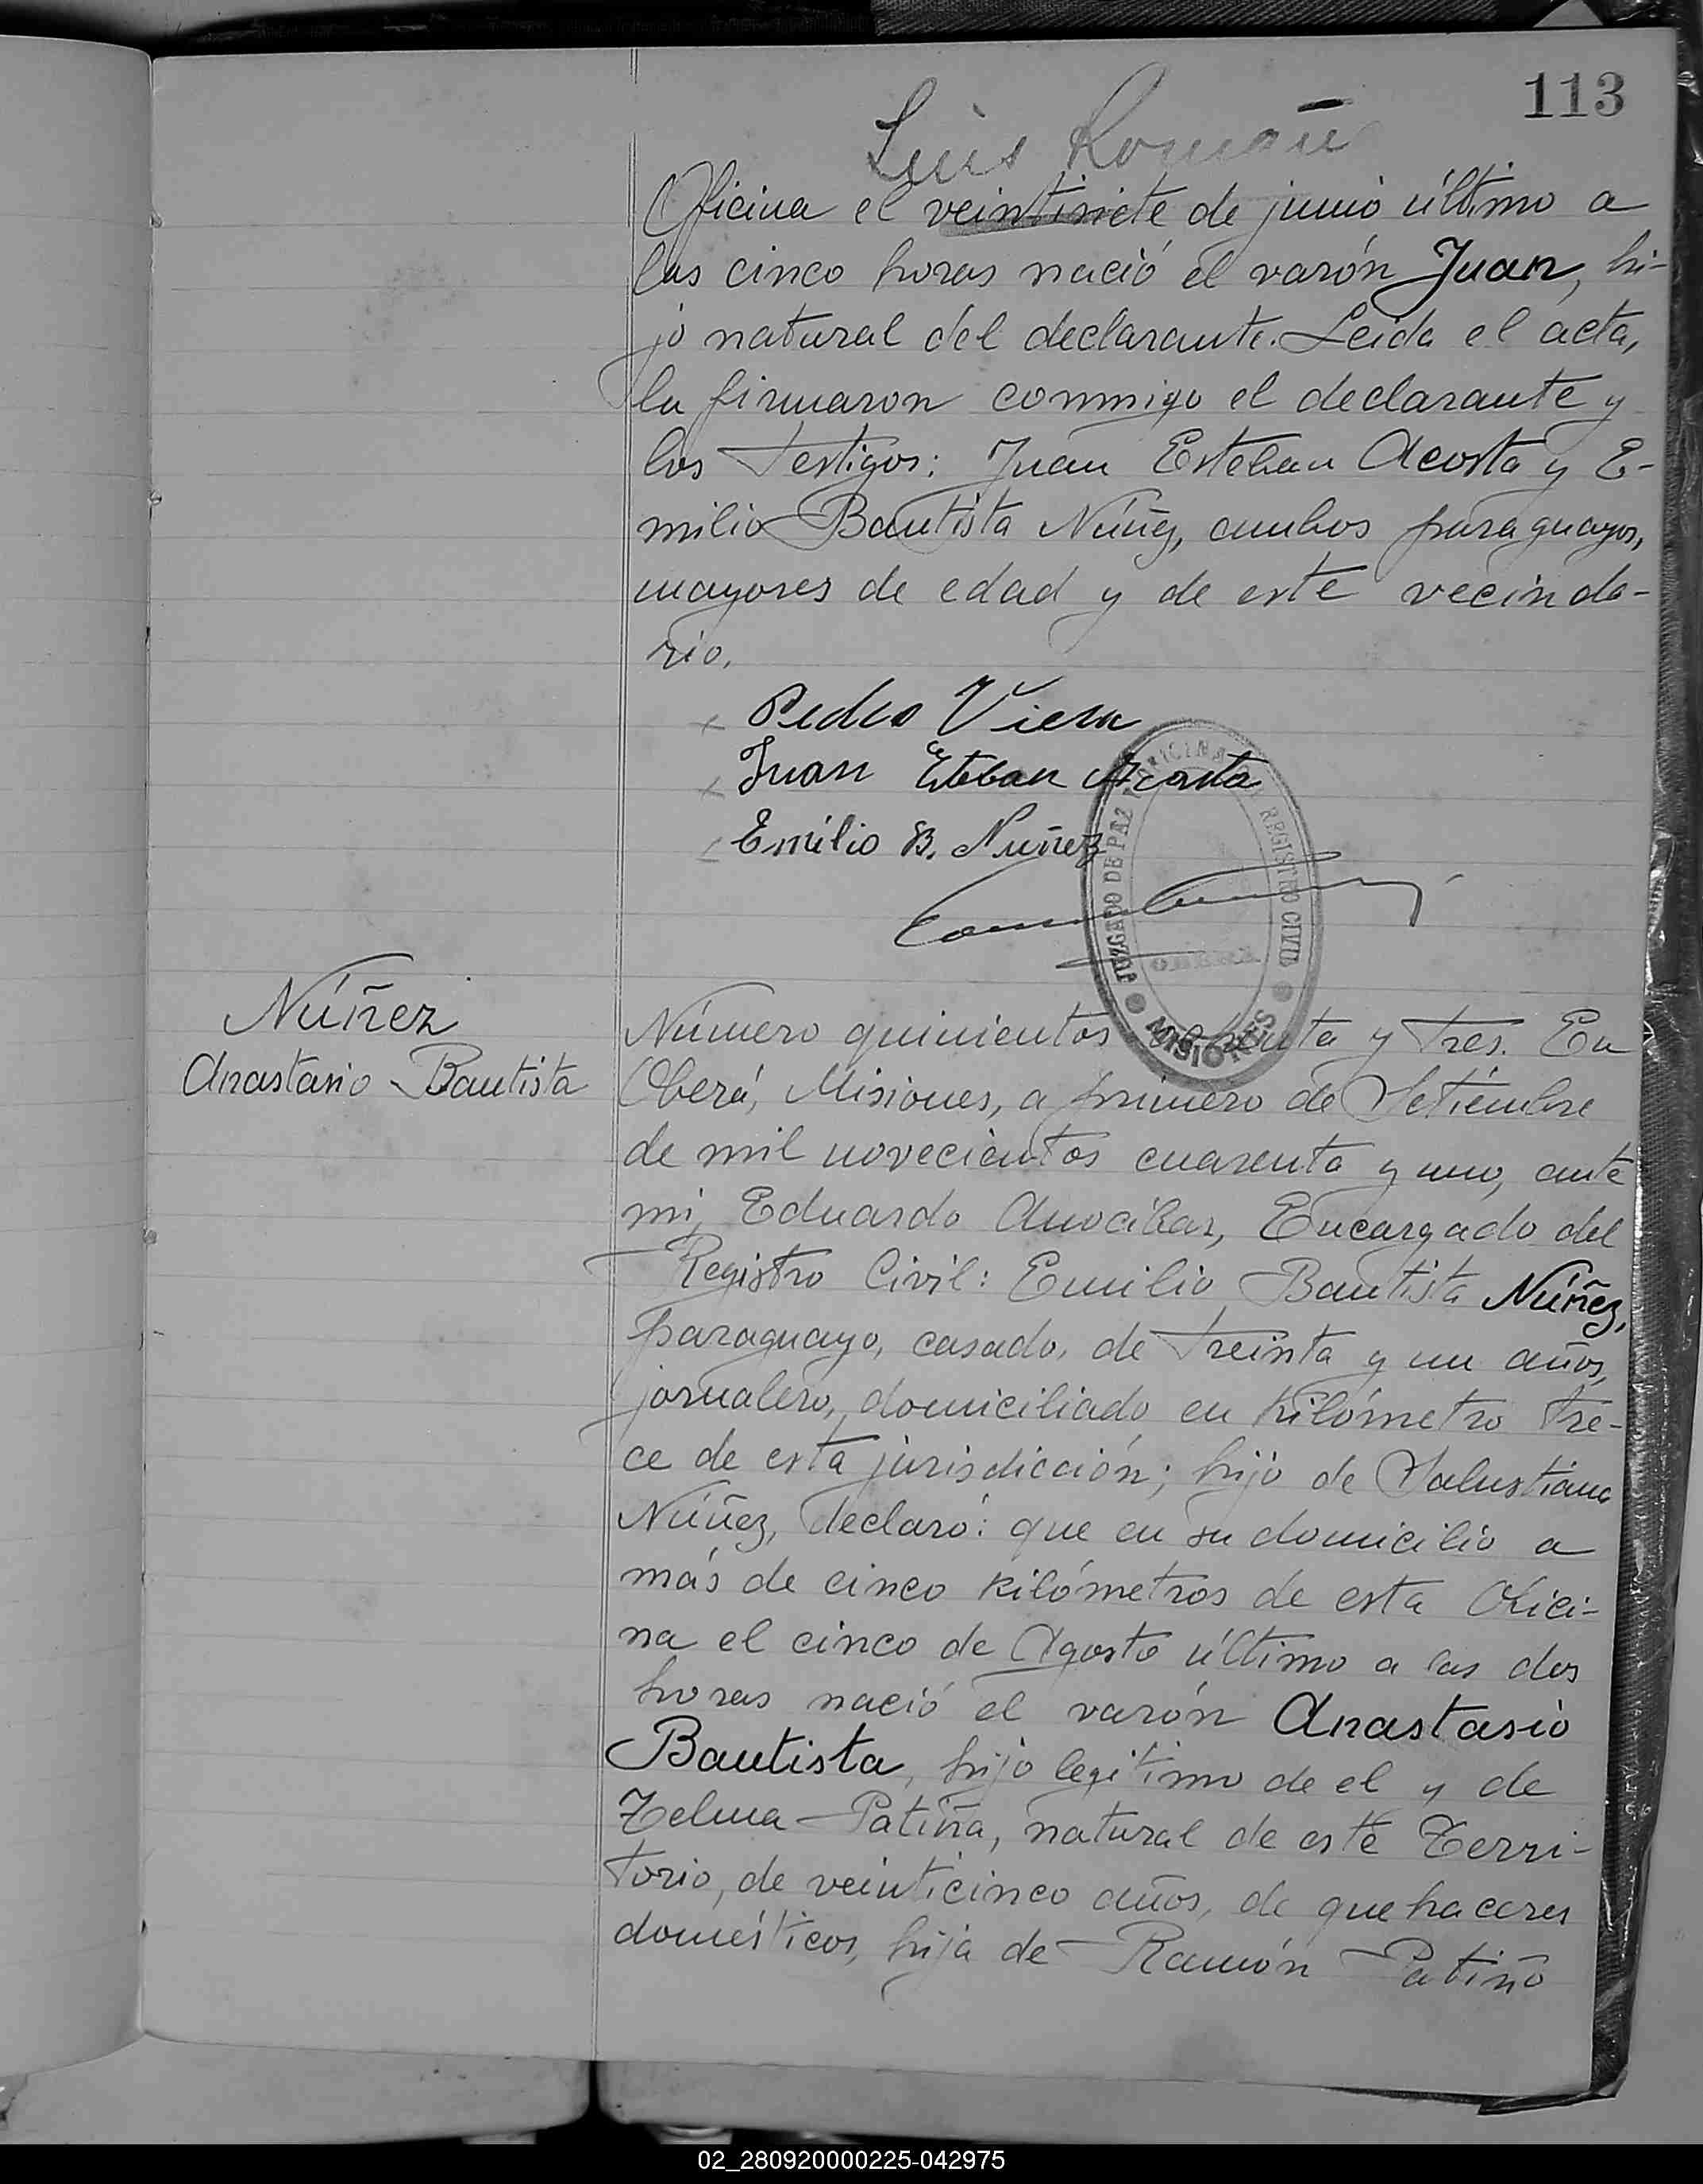 113
Luis Román
Oficina el veintisiete de junio último a
las cinco horas nació el varón Juan, hi-
jo natural del declarante. Leída el acta,
la firmaron conmigo el declarante y
los testigos: Juan Esteban Acosta y E-
milio Bautista Núñez, ambos paraguayos,
mayores de edad y de este vecinda-
rio.
Pedro Viera
Juan Esteban Acosta
Emilio B. Nuñez
JUZGADO DE PAZ REGISTRO CIVIL
OBERA
MISIONES
Núñez
Anastasio Bautista
Número quinientos ochenta y tres. En
Oberá, Misiones, a primero de Setiembre
de mil novecientos cuarenta y uno, ante
mi, Eduardo Encargado del
Registro Civil: Emilio Bautista Núñez,
paraguayo, casado, de treinta y un años,
jornalero, domiciliado en kilómetro tre-
ce de esta jurisdicción; hijo de Salustiana
Núñez, declaró: que en su domicilio a
más de cinco kilómetros de esta Ofici-
na el cinco de Agosto último a las dos
horas nació el varón Anastasio
Bautista, hijo legitimo de el y de
Telma Patiña, natural de este Terri-
torio, de veinticinco años, de que haceres
domésticos, hija de Ramón Patiño
02_280920000225-042975